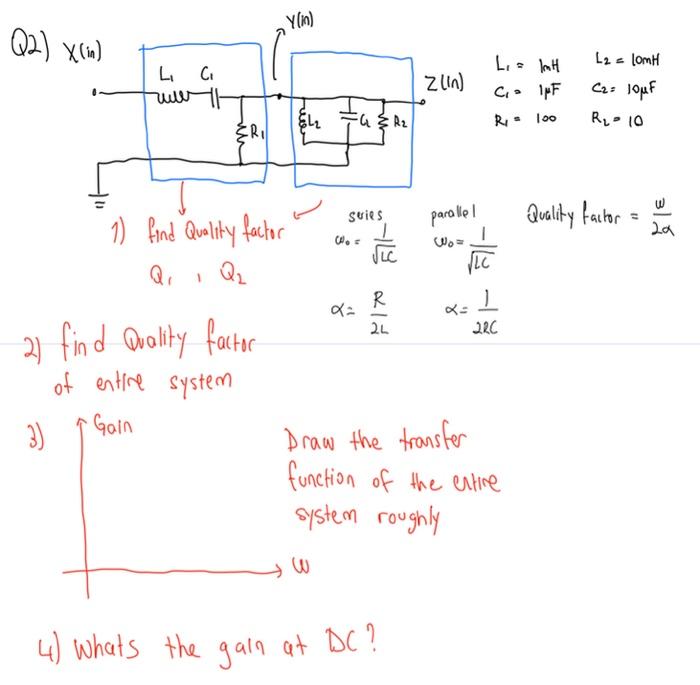 Q2) X(in)
Y(in)
L1 C1
R1
L2 C2 R2
Z(in)
L1 = 1mH L2 = 10mH
C1 = 1μF C2 = 10μF
R1 = 100 R2 = 10
1) find Quality factor
Q1 , Q2
series parallel Quality factor = ω/2α
ω0 = 1/√LC ω0 = 1/√LC
α = R/2L α = 1/2RC
2) find Quality factor
of entire system
3) Gain
ω
Draw the transfer
function of the entire
system roughly
4) Whats the gain at DC?